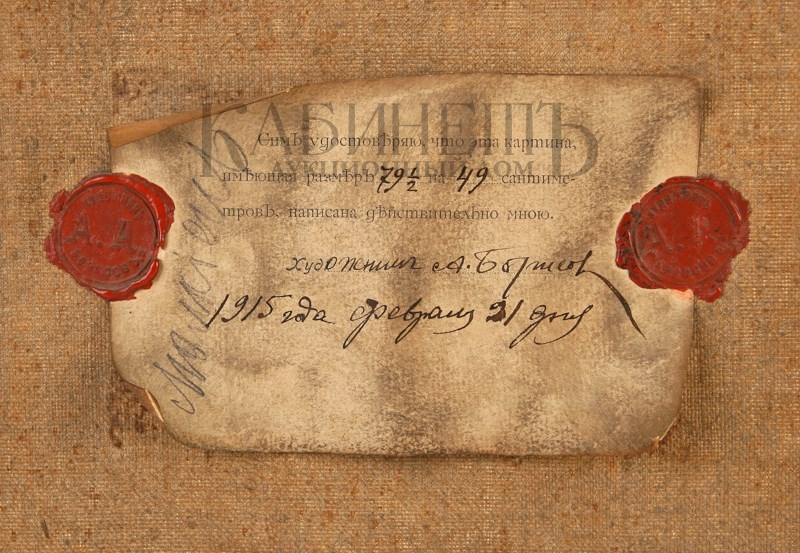 КАБИНЕТЪ
АУКЦИОННЫЙ ДОМ
Симъ удостовѣряю, что эта картина,
имѣющая размѣръ 79 1/2 на 49 сантиме-
тровъ, написана дѣйствительно мною.
Художникъ А. Борисов
1915 года февраля 21 дня